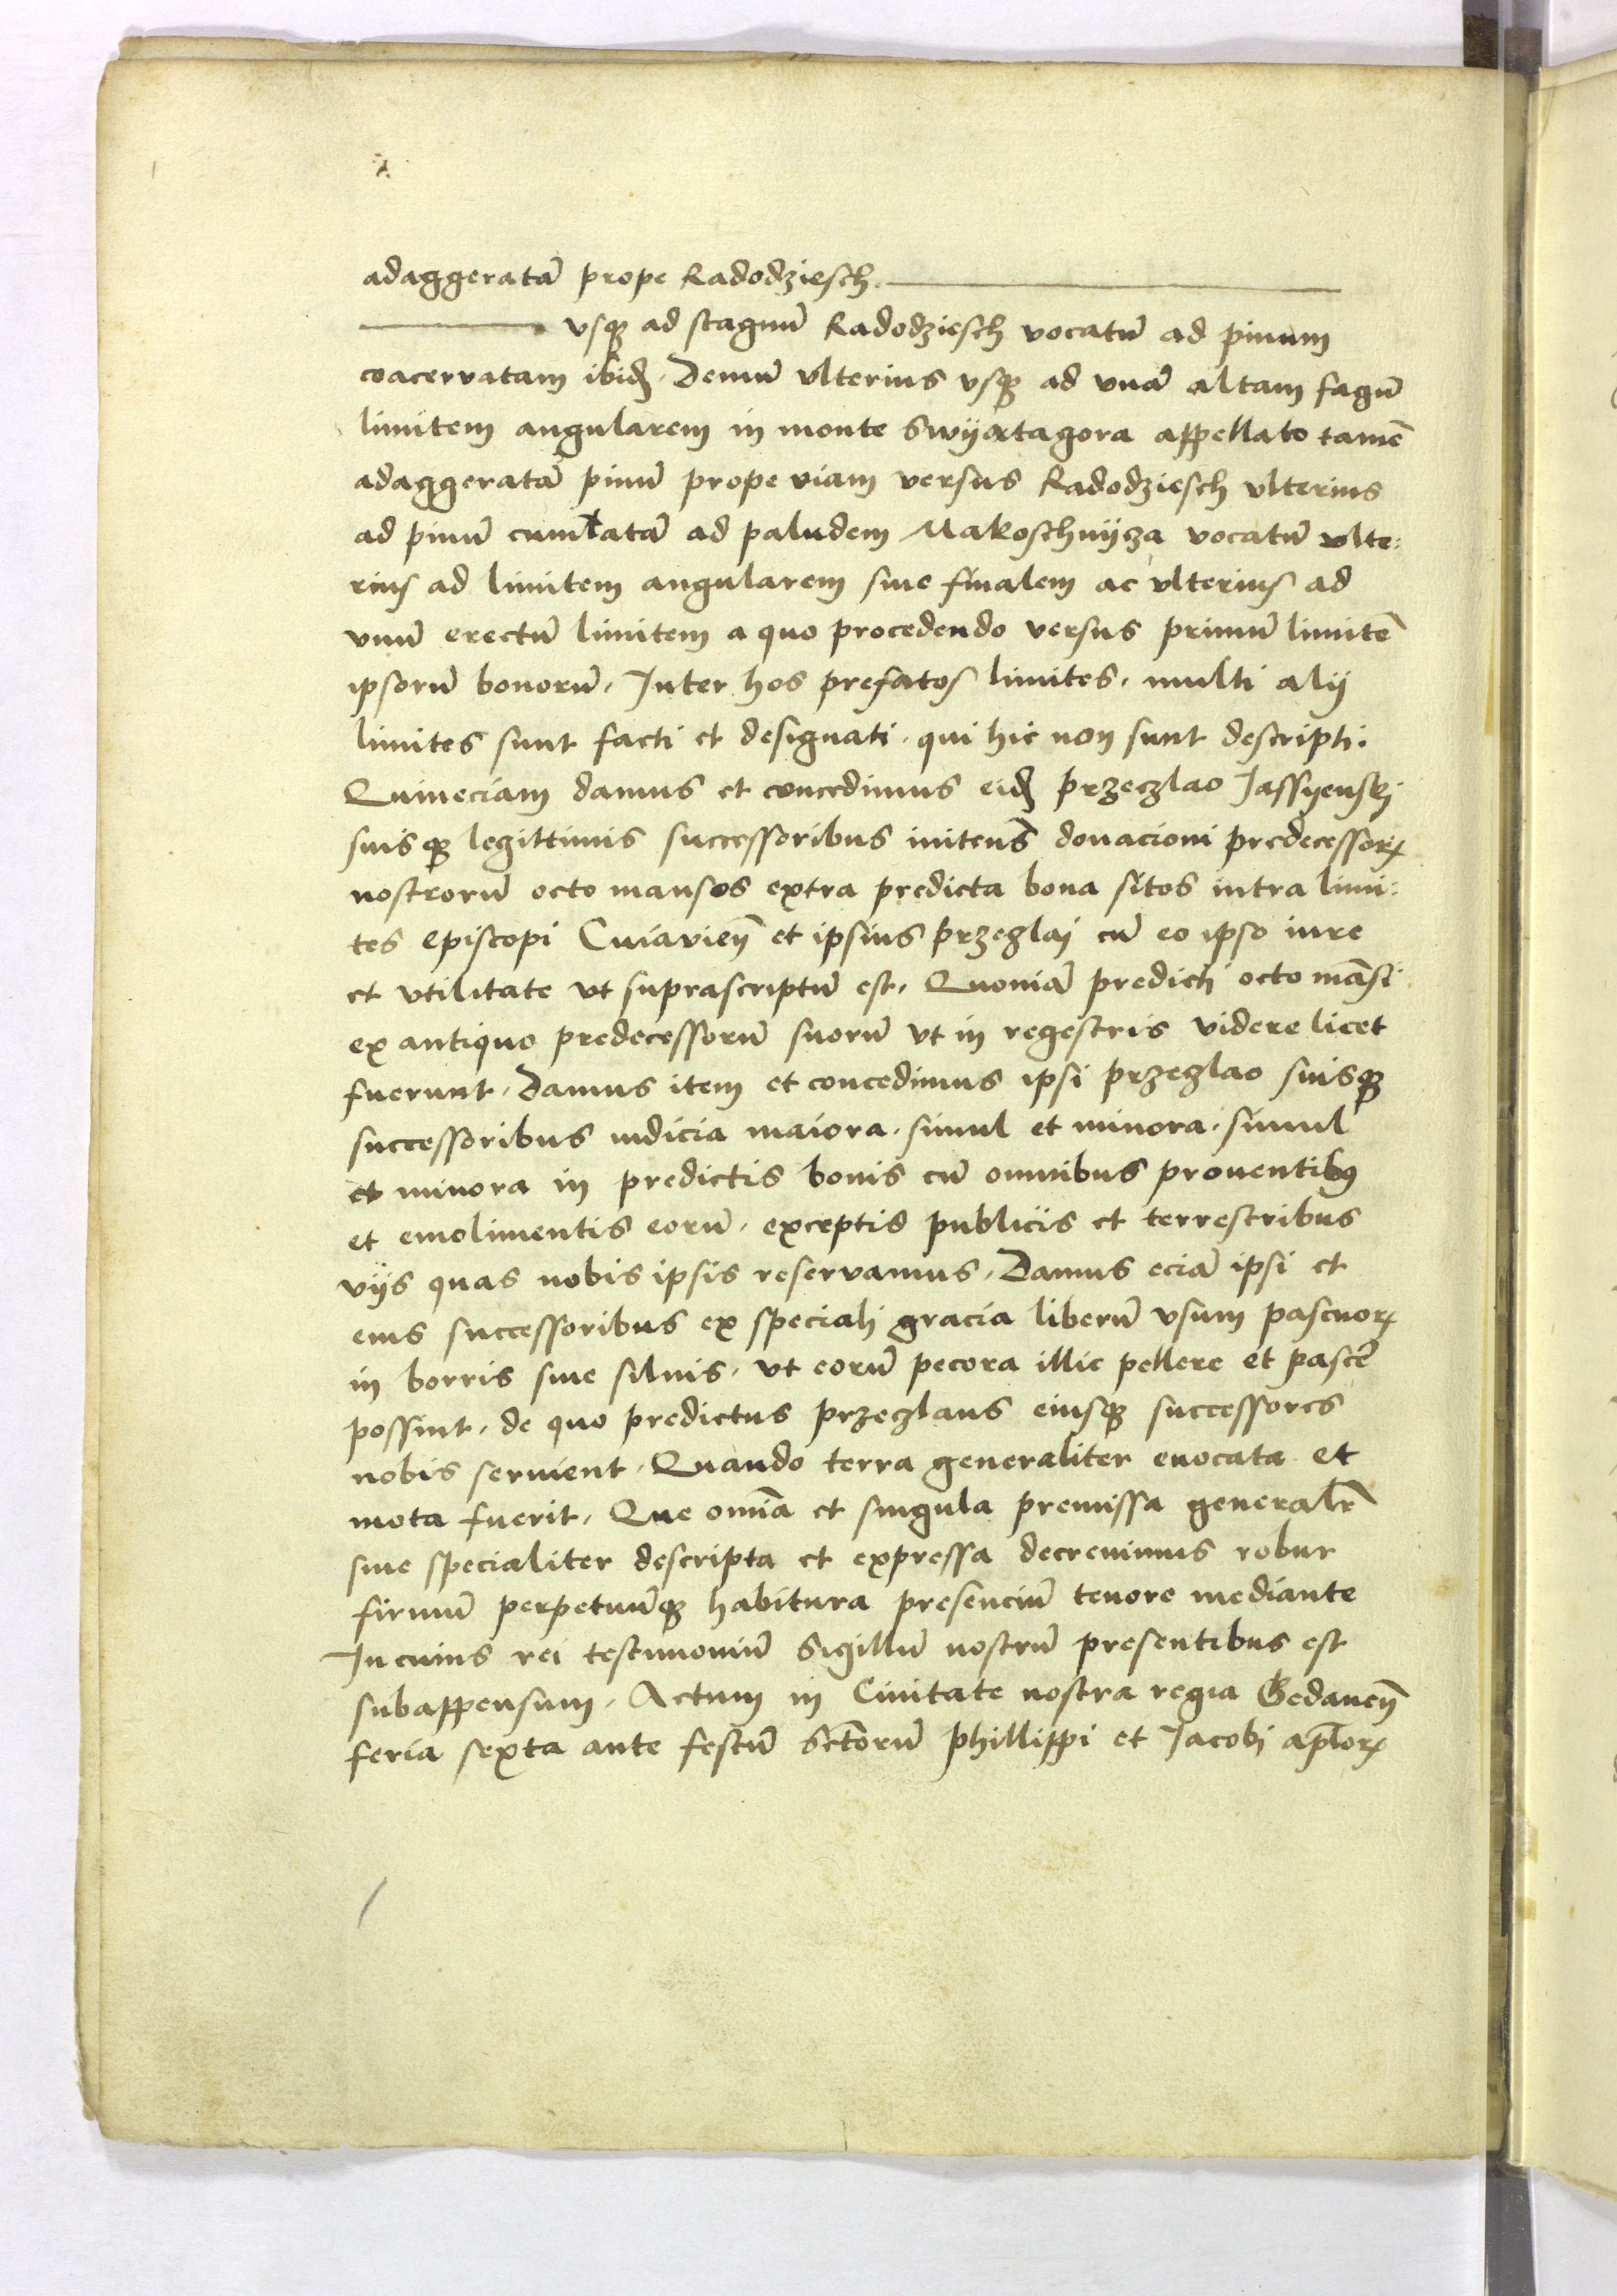 adaggeratā prope Radodziesch.
vsqꝫ ad stagnū Radodziesch vocatū ad pinum
coacervatam ibidꝫ. Demū vlterius vsqꝫ ad vnā altam fagū
limitem angularem in monte Swyatagora appellato tamē
adaggeratā pinū prope viam versus Radodziesch vlterius
ad pinū cumlatā ad paludem Makoschnijza vocatū vlte:
rius ad limitem angularem siue finalem ac vlterius ad
vnū erectū limitem a quo procedendo versus primū limitē
ipsorū bonorū. Inter hos prefatos limites. multi alij
limites sunt facti et designati. qui hic non sunt descripti.
Quineciam damus et concedimus eidꝫ Przeczlao Jassyenskj
suisqꝫ legittimis successoribus initens donacioni predecessorꝝ
nostrorū octo mansos extra predicta bona sitos intra limi:
tes Episcopi Cuiavieñ et ipsius Przeczlaj cū eo ipso iure
et vtilitate vt suprascriptū est. Quoniā predicti octo māsi
ex antiquo predecessorū suorū vt in regestris videre licet
fuerunt. Damus item et concedimus ipsi Przeczlao suisqꝫ
successoribus iudicia maiora. simul et minora. simul
et minora in predictis bonis cū omnibus prouentibꝰ
et emolimentis eorū. exceptis publicis et terrestribus
viis quas nobis ipsis reservamus. Damus eciā ipsi et
eius successoribus ex speciali gracia liberū vsum pascuorꝝ
in borris siue siluis. vt eorū pecora illic pellere et pascē
possint. de quo predictus Przeczlaus eiusqꝫ successores
nobis seruient. Quando terra generaliter euocata et
mota fuerit. Que omīa et singula premissa generalr̄
siue specialiter descripta et expressa decreuimus robur
firmū perpetuūqꝫ habitura presenciū tenore mediante
In cuius rei testimoniū Sigillū nostrū presentibus est
subappensum. Actum in Ciuitate nostra regia Gedaneñ
feria sexta ante festū Sctorū Phillippi et Jacobi aplorꝝ